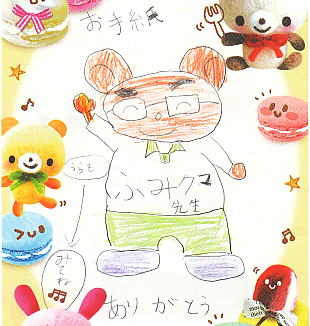 お手紙
うらも
ふみクマ
先生
みてね
ありがとう